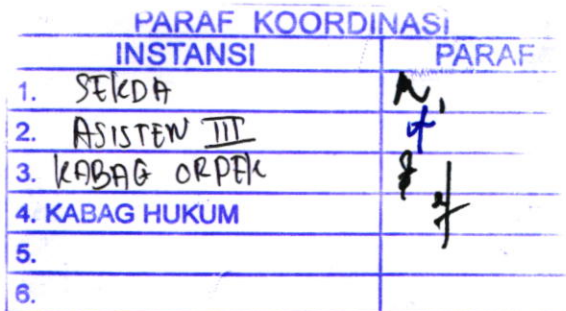 PARAF KOORDINASI
INSTANSI PARAF
1. SEKDA
2. ASISTEN III
3. KABAG ORPEK
4. KABAG HUKUM
5.
6.